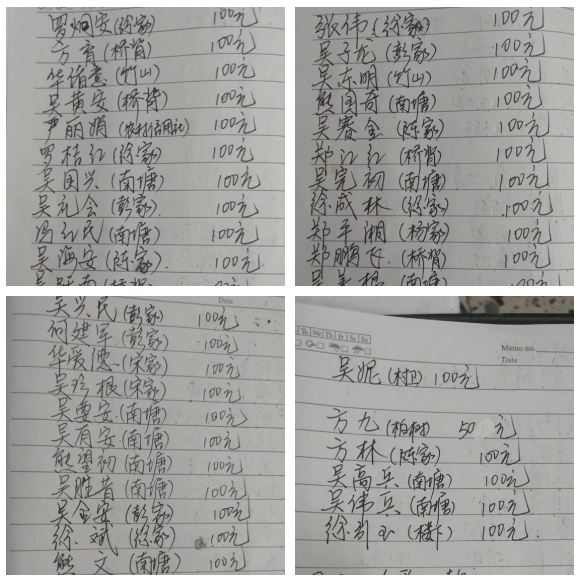 罗炯安(徐家) 100元
方育(桥背) 100元
华诸意(竹山) 100元
吴黄安(桥背) 100元
尹丽娟(农村信用社) 100元
罗桔红(徐家) 100元
吴国兴(南塘) 100元
吴礼会(彭家) 100元
冯红民(南塘) 100元
吴海安(陈家) 100元
张伟(徐家) 100元
吴子龙(彭家) 100元
吴东明(竹山) 100元
熊国奇(南塘) 100元
吴赛金(陈家) 100元
郑江红(桥背) 100元
吴完初(南塘) 100元
徐成林(徐家) 100元
郑平湘(杨家) 100元
郑鹏飞(桥背) 100元
吴美根(南塘) 100元
Date
吴兴民(彭家) 100元
何建军(彭家) 100元
华爱德(宋家) 100元
吴珍根(宋家) 100元
吴要安(南塘) 100元
吴有安(南塘) 100元
熊望初(南塘) 100元
吴胜昔(南塘) 100元
吴金安(彭家) 100元
徐斌(徐家) 100元
熊文(南塘) 100元
Tu We Th Fr Sa Su
Memo no.
Date
吴妮(村卫) 100元
方九(柏树) 50元
方林(陈家) 100元
吴高兵(南塘) 100元
吴伟兵(南塘) 100元
徐别玉(楼下) 100元